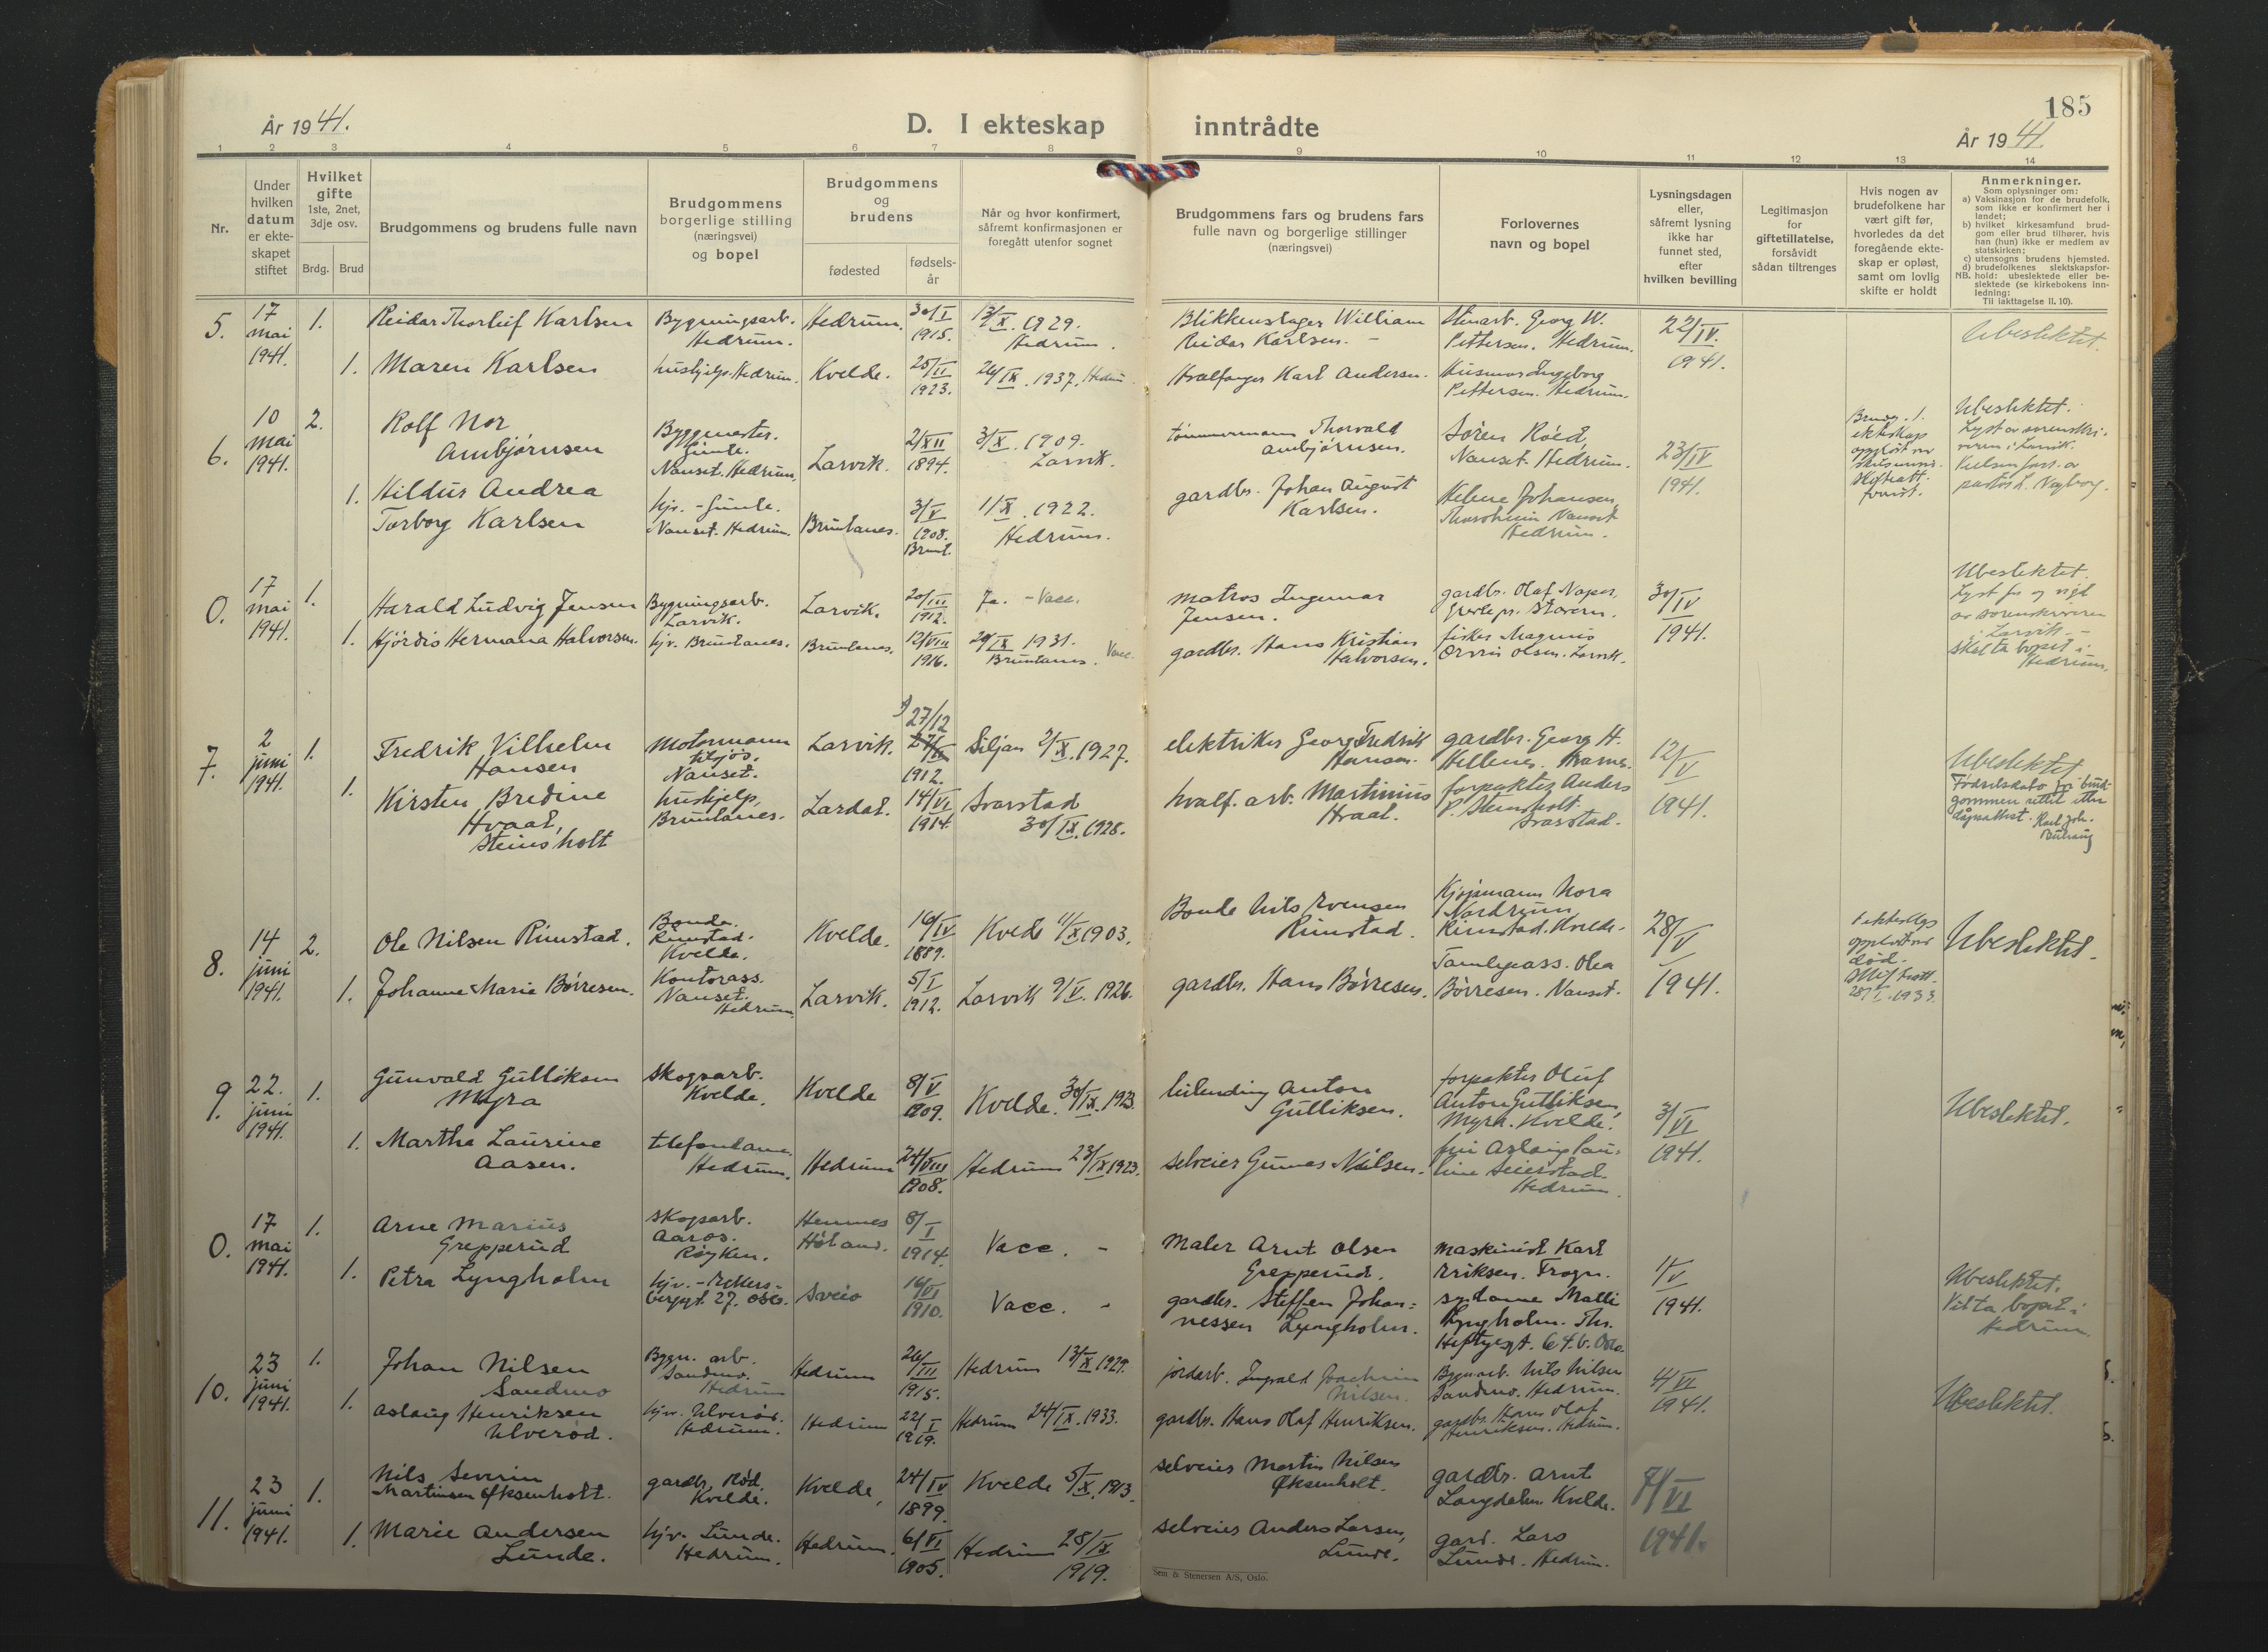 År 1941.
D. I ekteskap
inntrådte
185
År 1941.
1 2 3 4 5 6 7 8 9 10 11 12 13 14
Nr.
Under
hvilken
datum
er ekte-
skapet
stiftet
Hvilket
gifte
1ste, 2net,
3dje osv.
Brdg. Brud
Brudgommens og brudens fulle navn
Brudgommens
borgerlige stilling
(næringsvei)
og bopel
Brudgommens
og
brudens
fødested
fødsels-
år
Når og hvor konfirmert,
såfremt konfirmasjonen er
foregått utenfor sognet
Brudgommens fars og brudens fars
fulle navn og borgerlige stillinger
(næringsvei)
Forlovernes
navn og bopel
Lysningsdagen
eller,
såfremt lysning
ikke har
funnet sted,
efter
hvilken bevilling
Legitimasjon
for
giftetillatelse,
forsåvidt
sådan tiltrenges
Hvis nogen av
brudefolkene har
vært gift før,
hvorledes da det
foregående ekte-
skap er opløst,
samt om lovlig
skifte er holdt
Anmerkninger.
Som oplysninger om:
a) Vaksinasjon for de brudefolk,
som ikke er konfirmert her i
landet;
b) hvilket kirkesamfund brud-
gom eller brud tilhører, hvis
han (hun) ikke er medlem av
statskirken;
c) utensogns brudens hjemsted.
d) brudefolkenes slektskapsfor-
NB. hold: ubeslektede eller be-
slektede (se kirkebokens inn-
ledning:
Til iakttagelse II. 10).
5.
17
mai
1941.
1.
Reidar Thorleif Karlsen
Bygningsarb.
Hedrum.
Hedrum.
30/I
1915.
13/X. 1929.
Hedrum.
Blikkenslager William
Reidar Karlsen. -
Stenarb. Georg W.
Pettersen. Hedrum.
22/IV.
1941.
Ubeslektet.
1. Maren Karlsen
hushjelp. Hedrum.
Kvelde.
25/II
1923.
26/IX. 1937. Hedrum
Hvalfanger Karl Andersen.
Husmor Ingeborg
Pettersen. Hedrum.
6.
10
mai
1941.
2.
Rolf Nor
Ambjørnsen
Byggmester.
Gimle.
Nanset. Hedrum.
Larvik.
2/XII
1894.
3/X. 1909.
Larvik.
tømmermann Thorvald
Ambjørnsen.
Sören Röed,
Nanset. Hedrum.
23/IV
1941.
ekteskap
Ubeslektet.
Lyst av sorenskri-
veren i Larvik.
1. Hildur Andrea
Torborg Karlsen
hjv. - Gimle.
Nanset. Hedrum.
Brunlanes.
3/V
1908.
Brunl.
1/X. 1922.
Hedrum.
gardbr. Johan August
Karlsen.
Helene Johansen,
Nanset
Hedrum.
0.
17
mai
1941.
1.
Harald Ludvig Jensen
Bygningsarb.
Larvik.
Larvik.
20/III
1912.
Ja. - Vacc.
matros Ingemar
Jensen.
gardbr. Olaf Naper,
pr. Stavern.
30/IV
1941.
Ubeslektet.
Lyst for og viet
av sorenskriveren
i Larvik. -
Skal ta bopel i
Hedrum.
1. Hjördis Hermana Halvorsen.
hjv. Brunlanes.
Brunlanes.
12/VIII
1916.
20/IX 1931.
Brunlanes. Vacc.
gardbr. Hans Kristian
Halvorsen.
fisker Magnus
Olsen. Larvik.
7.
2
juni
1941.
1.
Fredrik Vilhelm
Hansen
Motormann
Nanset.
Larvik.
27/12
1912.
Siljan 2/X. 1927.
elektriker Georg Fredrik
Hansen.
gardbr. Georg H.
Hellenes.
12/V
1941.
Ubeslektet
Fødselsdato for brud-
gommen rettet etter
dåpsattest.
1.
Kirsten Bredine
Hvaal,
Steinsholt
hushjelp,
Brunlanes.
Lardal.
14/VI
1914.
Svarstad
30/IX. 1928.
hvalf. arb. Martinius
Hvaal.
forpakter Anders
P. Steinsholt.
Svarstad.
8.
14
juni
1941.
2.
Ole Nilsen Rimstad.
Bonde.
Rimstad.
Kvelde.
Kvelde.
16/IV
1889.
Kvelde 11/X 1903.
Bonde Nils Evensen
Rimstad.
Kjøpmann Nora
Nordrum
Rimstad. Kvelde.
28/V
1941.
død.
1933.
Ubeslektet.
1. Johanne Marie Börresen.
Kontorass.
Nanset.
Hedrum.
Larvik.
5/I
1912.
Larvik 9/V. 1926.
gardbr. Hans Börresen.
Familieass. Olea
Börresen. Nanset.
9.
22.
juni
1941.
1.
Gunvald Gulliksen
Myra
Skogsarb.
Kvelde.
Kvelde
8/V
1909.
Kvelde. 30/IX. 1923.
leilending Anton
Gulliksen.
forpakter Oluf
Anton Gulliksen,
Myra. Kvelde.
3/VI
1941.
Ubeslektet.
1. Martha Laurine
Aasen.
telefondame.
Hedrum.
Hedrum
24/VIII
1908.
Hedrum 23/IX 1923.
selveier Gunnar Nilsen.
fru Aslaug Pau-
line Seierstad.
Hedrum.
0.
17
mai
1941.
1.
Arne Marius
Grepperud
Skogarb.
Aaros.
Røyken.
Hemnes
Høland.
8/I
1914.
Vacc. -
Maler Arnt Olsen
Grepperud.
Maskinist Karl
Eriksen. Frogn.
1/V
1941.
Ubeslektet.
Vil ta bopel i
Hedrum.
1.
Petra Lyngholm
hjv. - Ekkers-
berggt. 27. Oslo.
Sveio
16/VI
1910.
Vacc. -
gardbr. Steffen Johan-
nessen Lyngholm.
sydame Malli
Lyngholm. Th.
Heftyesgt. 64.b. Oslo.
10.
23
juni
1941.
1.
Johan Nilsen
Sandmo
Bygn. arb.
Sandmo.
Hedrum
Hedrum
26/III
1915.
Hedrum 13/X 1929.
jordarb. Ingvald Joachim
Nilsen.
Bygn.arb. Nils Nilsen
Sandmo. Hedrum.
4/VI
1941.
Ubeslektet.
1. Aslaug Henriksen
Ulverød.
hjv. Ulverød.
Hedrum.
Hedrum
22/I
1919.
Hedrum 24/IX. 1933.
gardbr. Hans Olaf Henriksen.
gardbr. Hans Olaf
Henriksen. Hedrum.
11.
23
juni
1941.
1.
Nils Severin
Martinsen Øksenholt.
gardbr. Rød.
Kvelde.
Kvelde,
24/IV
1899.
Kvelde 5/X. 1913.
selveier Martin Nilsen
Øksenholt.
gardbr. Arnt
Langdalen Kvelde.
7/VI
1941.
1. Marie Andersen
Lunde.
hjv. Lunde.
Hedrum.
Hedrum.
6/VI
1905.
Hedrum 28/IX
1919.
selveier Anders Larsen,
Lunde.
gard. Lars
Lunde. Hedrum.
Sem & Stenersen A/S, Oslo.